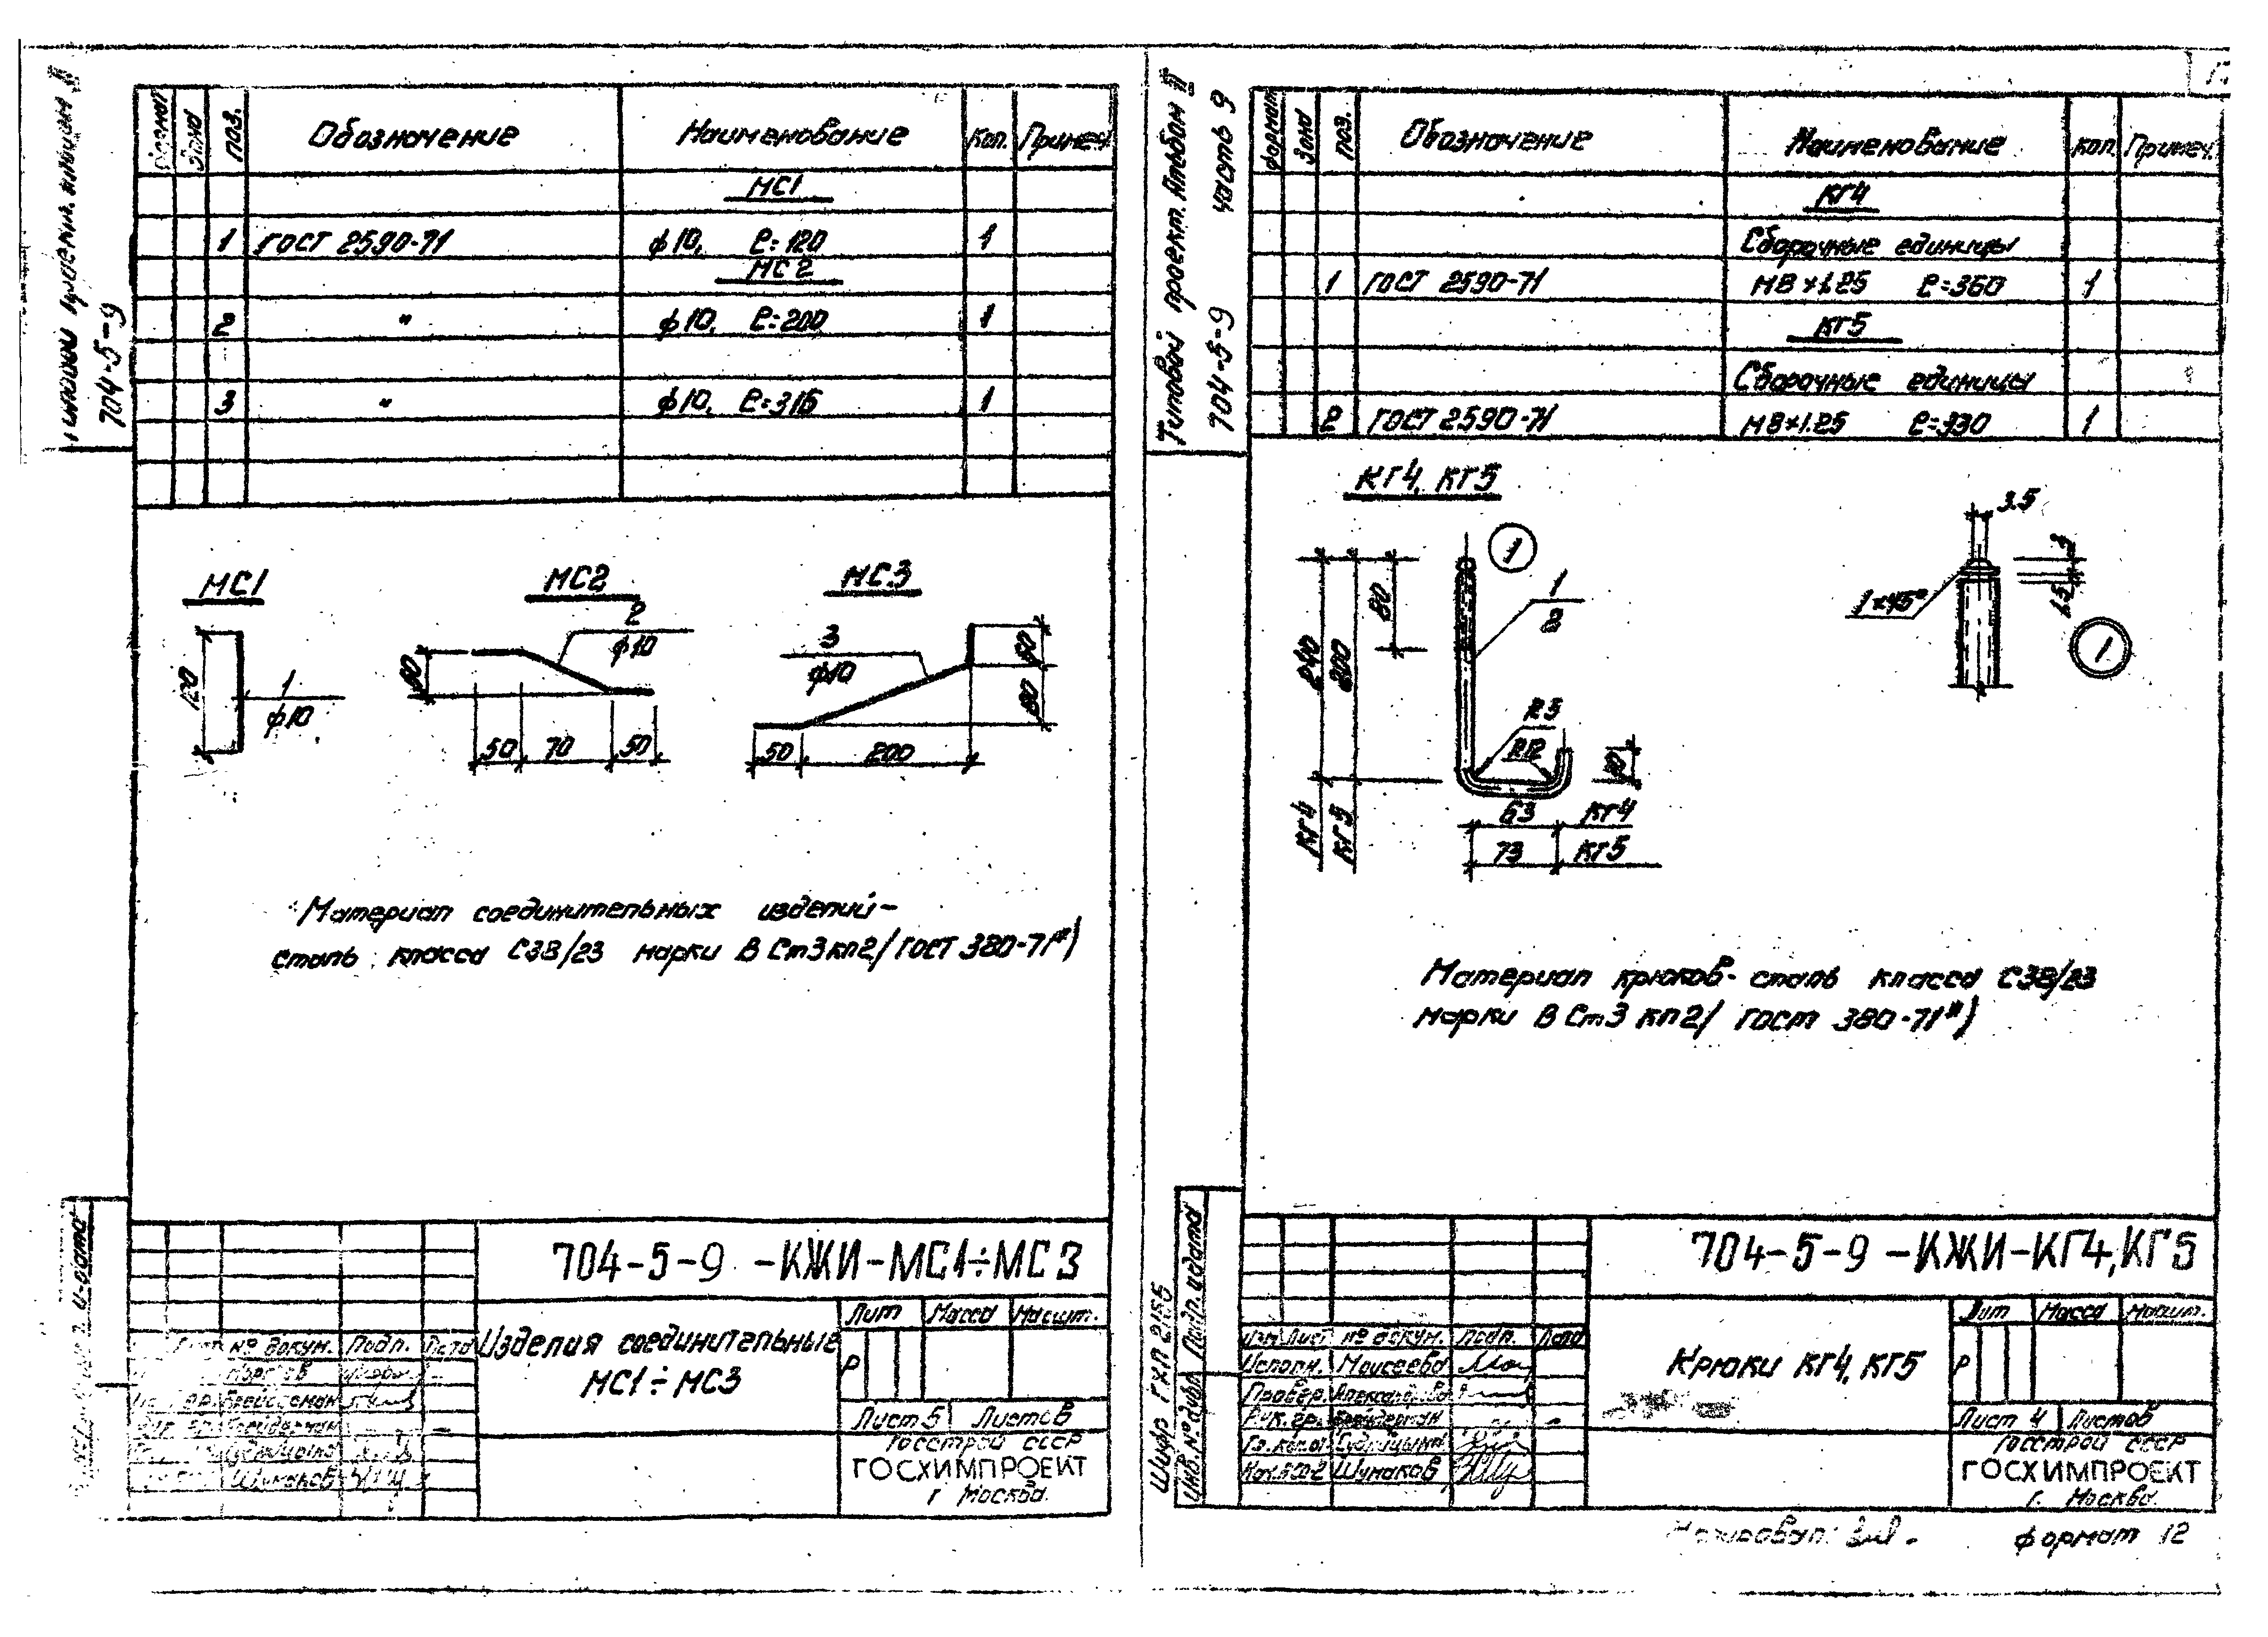 704-5-9
поз.
Обозначение
Наименование
Кол.
Примеч.
МС1
1 ГОСТ 2590-71 ф10, ℓ=120 1
МС2
2 " ф10, ℓ=200 1
3 " ф10, ℓ=315 1
МС1
120
1
ф10
МС2
2
ф10
50 70 50
МС3
3
ф10
50 200
Материал соединительных изделий-
сталь класса С38/23 марки ВСт3кп2/ГОСТ 380-71*)
704-5-9 -КЖИ-МС1÷МС3
Изделия соединительные
МС1÷МС3
Лит Масса Масшт.
Р
Лист 5 Листов
№ докум. Подп. Дата
Шумаков
Госстрой СССР
ГОСХИМПРОЕКТ
г. Москва.
Типовой проект. Альбом III
704-5-9 часть 9
формат
Зона
поз.
Обозначение
Наименование
Кол.
Примеч.
КГ4
Сборочные единицы
1 ГОСТ 2590-71 М8×1.25 ℓ=360 1
КГ5
Сборочные единицы
2 ГОСТ 2590-71 М8×1.25 ℓ=330 1
КГ4, КГ5
1
80
240
200
1
2
R12
КГ4
КГ5
63 КГ4
73 КГ5
3.5
1×45°
1
Материал крюков- сталь класса С38/23
марки ВСт3кп2/ ГОСТ 380-71*)
704-5-9 -КЖИ-КГ4,КГ5
Крюки КГ4, КГ5
Лит Масса Масшт.
Р
Лист 4 Листов
Изм Лист № докум. Подп. Дата
Исполн. Моисеева
Провер.
Рук. гр.
Шумаков
Госстрой СССР
ГОСХИМПРОЕКТ
г. Москва.
Шифр ГХП 2155
Инв. № дубл. Подп. и дата
Формат 12